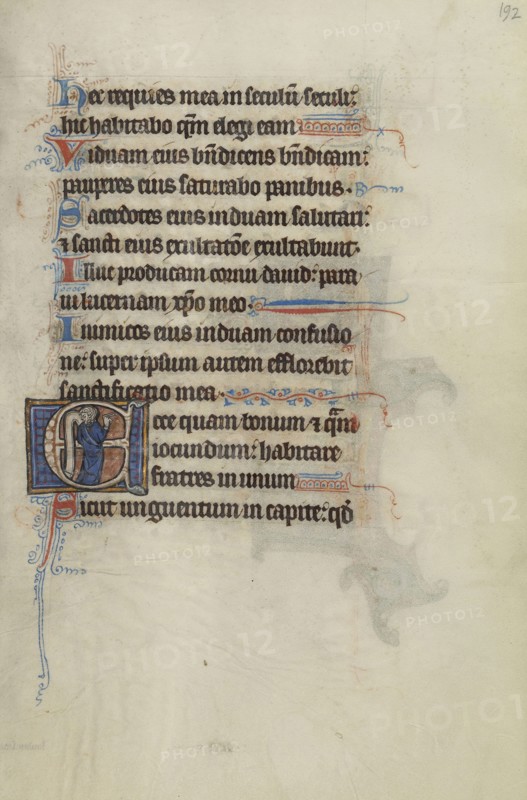 192
Hec requies mea in seculū seculi:
hic habitabo qm̄ elegi eam
Viduam eius bn̄dicens bn̄dicam:
pauperes eius saturabo panibus.
Sacerdotes eius induam salutari:
⁊ sancti eius exultatōe exultabunt.
Illuc producam cornu dauid: para
ui lucernam xp̄o meo.
Inimicos eius induam confusio
ne: super ipsum autem efflorebit
sanctificatio mea.
Ecce quam bonum ⁊ qm̄
iocundum: habitare
fratres in unum
Sicut unguentum in capite: qd̄
PHOTO12